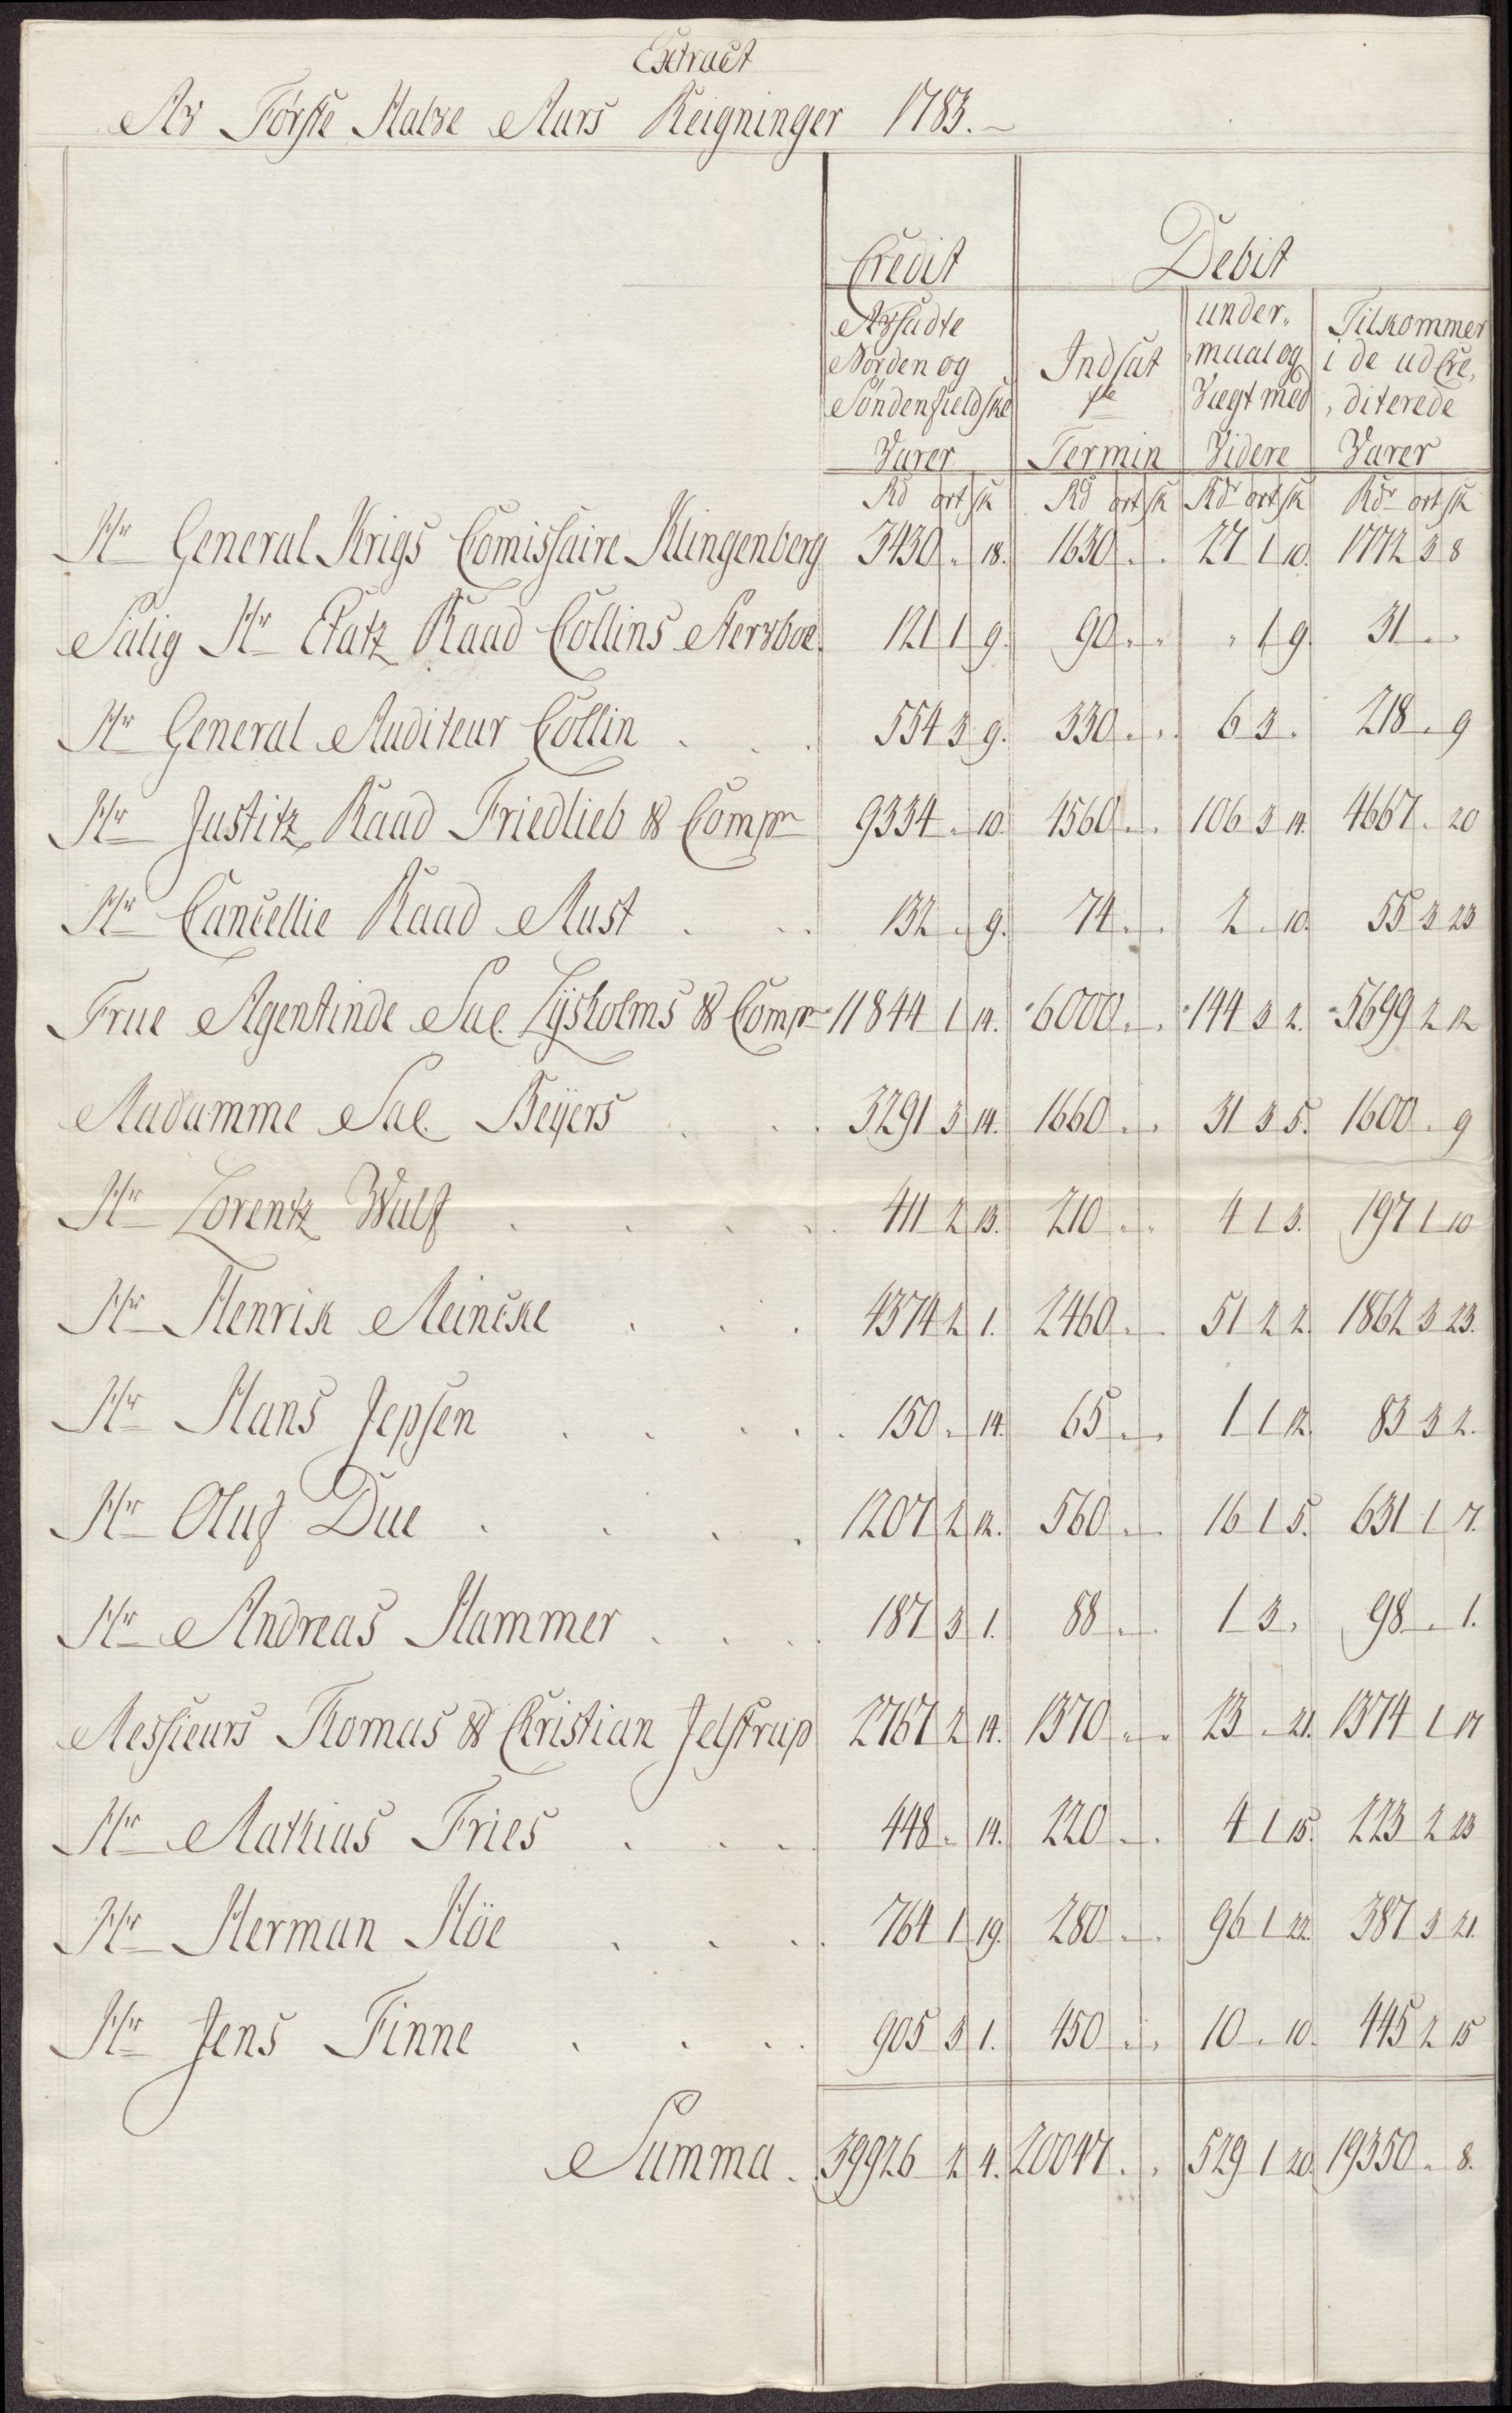 Extract
Av Første Halve Aars Reigninger 1783.
Credit Debit
Afsadte Norden og Søndenfieldske Varer
Indsat 1ste Termin
under, maal og Vægt med Videre
Tilkommer i de udcre, diterede Varer
Rd ort sk Rd ort sk Rdr ort sk Rdr ort sk
Hr General Krigs Comissaire Klingenberg 3430 . 18. 1630 . . 27 1 10. 1772 3 8
Salig Hr Etatz Raad Collins Stervboe. 121 1 9. 90 . . . 1 9. 31 . .
Hr General Auditeur Collin . . . 554 3 9. 330 . . 6 3 . 218 . 9
Hr Justitz Raad Friedlieb & Compn 9334 . 10. 4560 . . 106 3 14. 4667 . 20
Hr Cancellie Raad Must . . . 132 . 9. 74 . . 2 . 10. 55 3 23
Frue Agentinde Sal. Lysholms & Compn 11844 1 14. 6000 . . 144 3 2. 5699 2 12
Madamme Sal. Beyers . . . 3291 3 14. 1660 . . 31 3 5. 1600 . 9
Hr Lorentz Wulf . . . . 411 2 13. 210 . . 4 1 3. 197 1 10
Hr Henrik Meincke . . . 4374 2 1. 2460 . . 51 2 2. 1862 3 23.
Hr Hans Jepsen . . . . . 150 . 14. 65 . . 1 1 12. 83 3 2.
Hr Oluf Due . . . . 1207 2 12. 560 . . 16 1 5. 631 1 7.
Hr Andreas Hammer . . . . 187 3 1. 88 . . 1 3 . 98 . 1.
Messieurs Thomas & Christian Jelstrup 2767 2 14. 1370 . . 23 . 21. 1374 1 17
Hr Mathias Fries . . . 448 . 14. 220 . . 4 1 15. 223 2 23
Hr Herman Höe . . . 764 1 19. 280 . . 96 1 22. 387 3 21.
Hr Jens Finne . . . . 905 3 1. 450 . . 10 . 10. 445 2 15
Summa . 39926 2 4. 20047 . . 529 1 20. 19350 . 8.